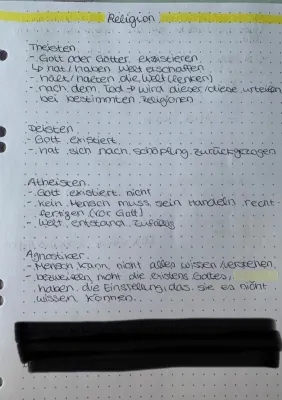 Religion
Theisten
- Gott oder Götter existieren
↳ hat / haben Welt erschaffen
- hält / halten die Welt (lenken)
- nach dem Tod → wird dieser/diese urteilen
- bei bestimmten Religionen
Deisten
- Gott existiert
- hat sich nach Schöpfung zurückgezogen
Atheisten
- Gott existiert nicht
- Kein Mensch muss sein Handeln recht-
fertigen (vor Gott)
- Welt entstand zufällig
Agnostiker
- Mensch kann nicht alles wissen/verstehen,
- bezweifeln nicht die existens Gottes,
haben die Einstellung, das sie es nicht
wissen können.